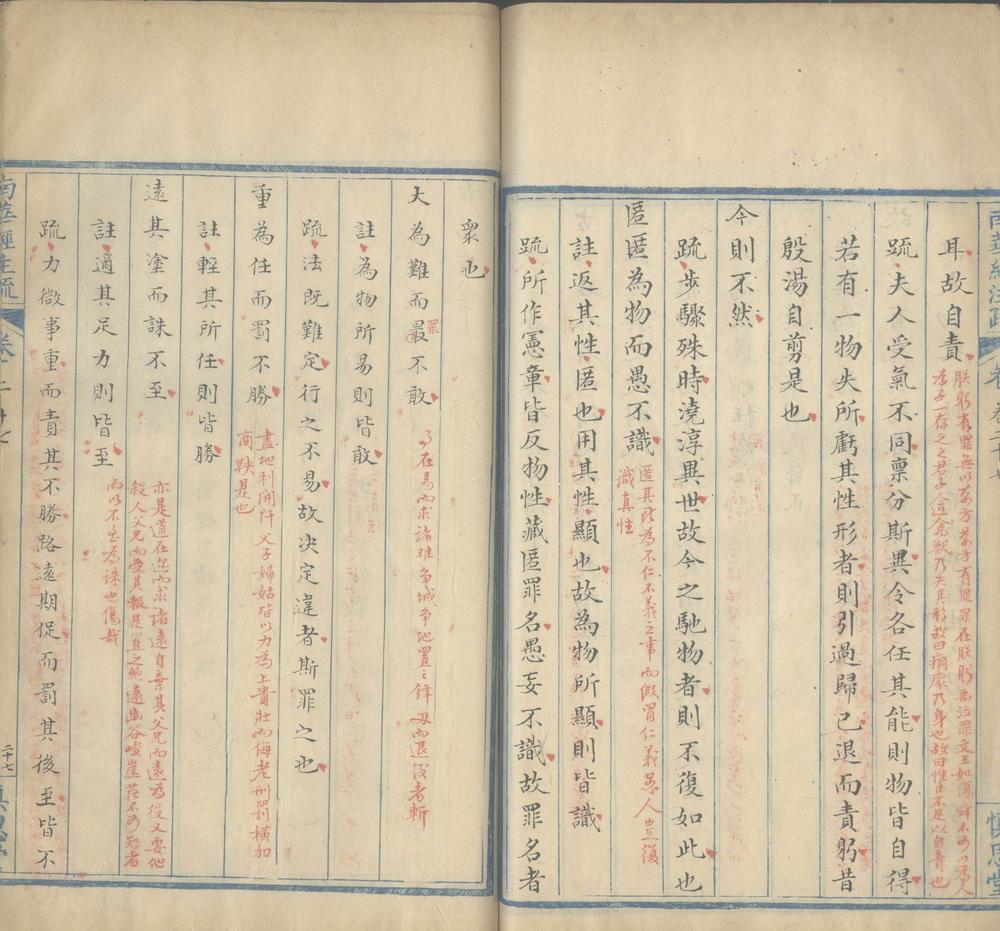 耳故自責
朕躬有罪無以萬方萬方有罪罪在朕躬禹泣罪文王如傷
疏夫人受氣不同稟分斯異令各任其能則物皆自得
若有一物失所虧其性形者則引過歸己退而責躬昔
殷湯自剪是也
今則不然
疏步驟殊時澆淳異世故今之馳物者則不復如此也
匿匿為物而愚不識
匿其所為不仁不義之事而假冒仁義愚人豈復
識真性
註返其性匿也用其性顯也故為物所顯則皆識
疏所作憲章皆反物性藏匿罪名愚妄不識故罪名者
慎思堂
眾也
大為難而最不敢
罪
在易而求諸難爭城爭地置之鋒刃而退後者斬
註為物所易則皆敢
疏法既難定行之不易故決定違者斯罪之也
重為任而罰不勝
盡地利開阡父子婦姑皆以力為上貴壯而侮老刑罰橫加
商鞅是也
註輕其所任則皆勝
遠其塗而誅不至
亦是道在邇而求諸遠自棄其父兄而遠為役又要他
殺人父兄而受其報是置之絕遠幽谷峻崖茫不可知者
而以不至為誅也傷哉
註適其足力則皆至
疏力微事重而責其不勝路遠期促而罰其後至皆不
南華經註疏
二十七